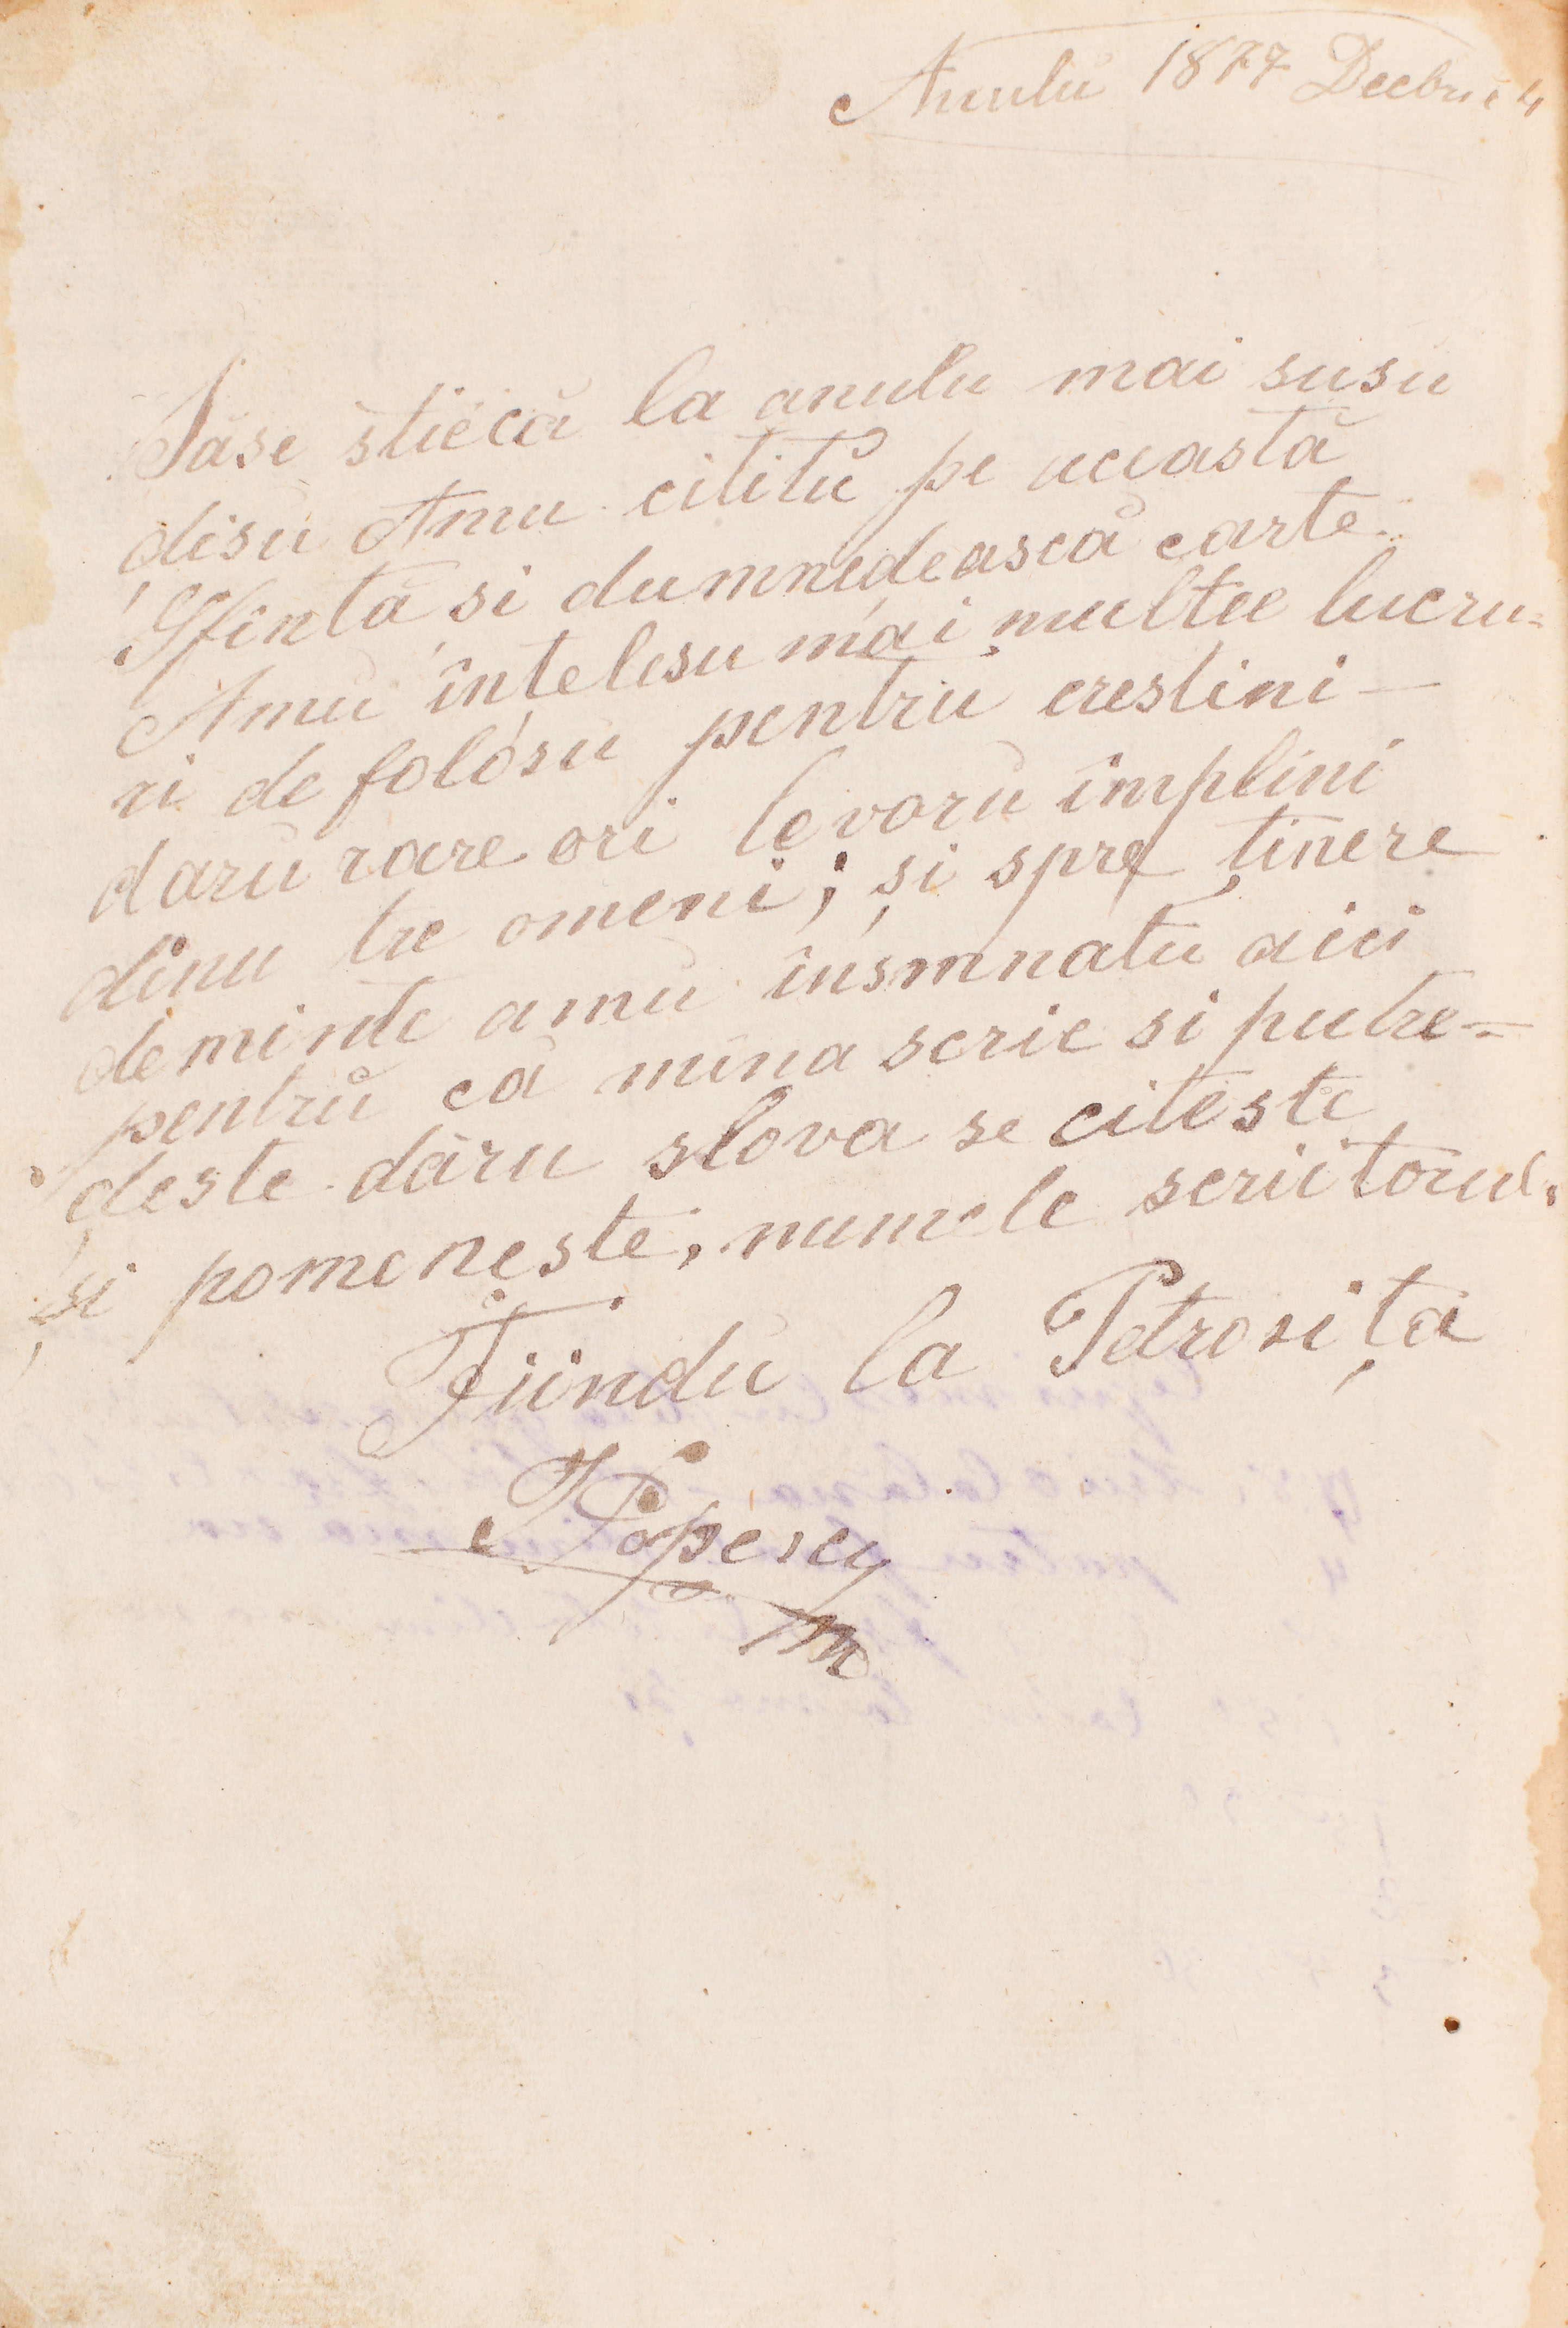 Anulŭ 1877 Decbrie 4
Săse stiecă la anulu mai susŭ
disŭ Amu cititŭ pe această
Sfintă si dumnedească carte
Amŭ înțelesu mai multe lucru=
ri de folosu pentru crestini —
darŭ rare ori le vorŭ împlini
dinu tre omeni; și spre ținere
deminte amŭ însmnatŭ aici
pentrŭ că mîna scrie si putre=
deste daru slova se citeste
și pomenește, numele scriitorul.
Fiindŭ la Petrosița
I Popescu